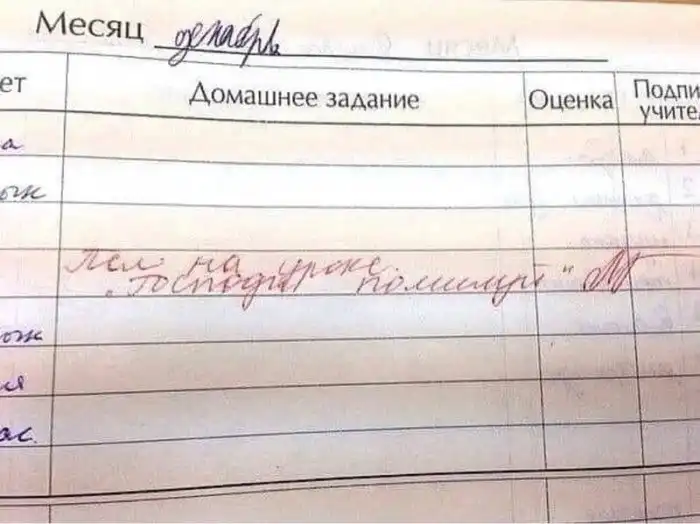 Месяц декабрь
ет Домашнее задание Оценка Подпи
учител
а
ык
Пел на уроке
"Господи помилуй"
ык
ия
ас.